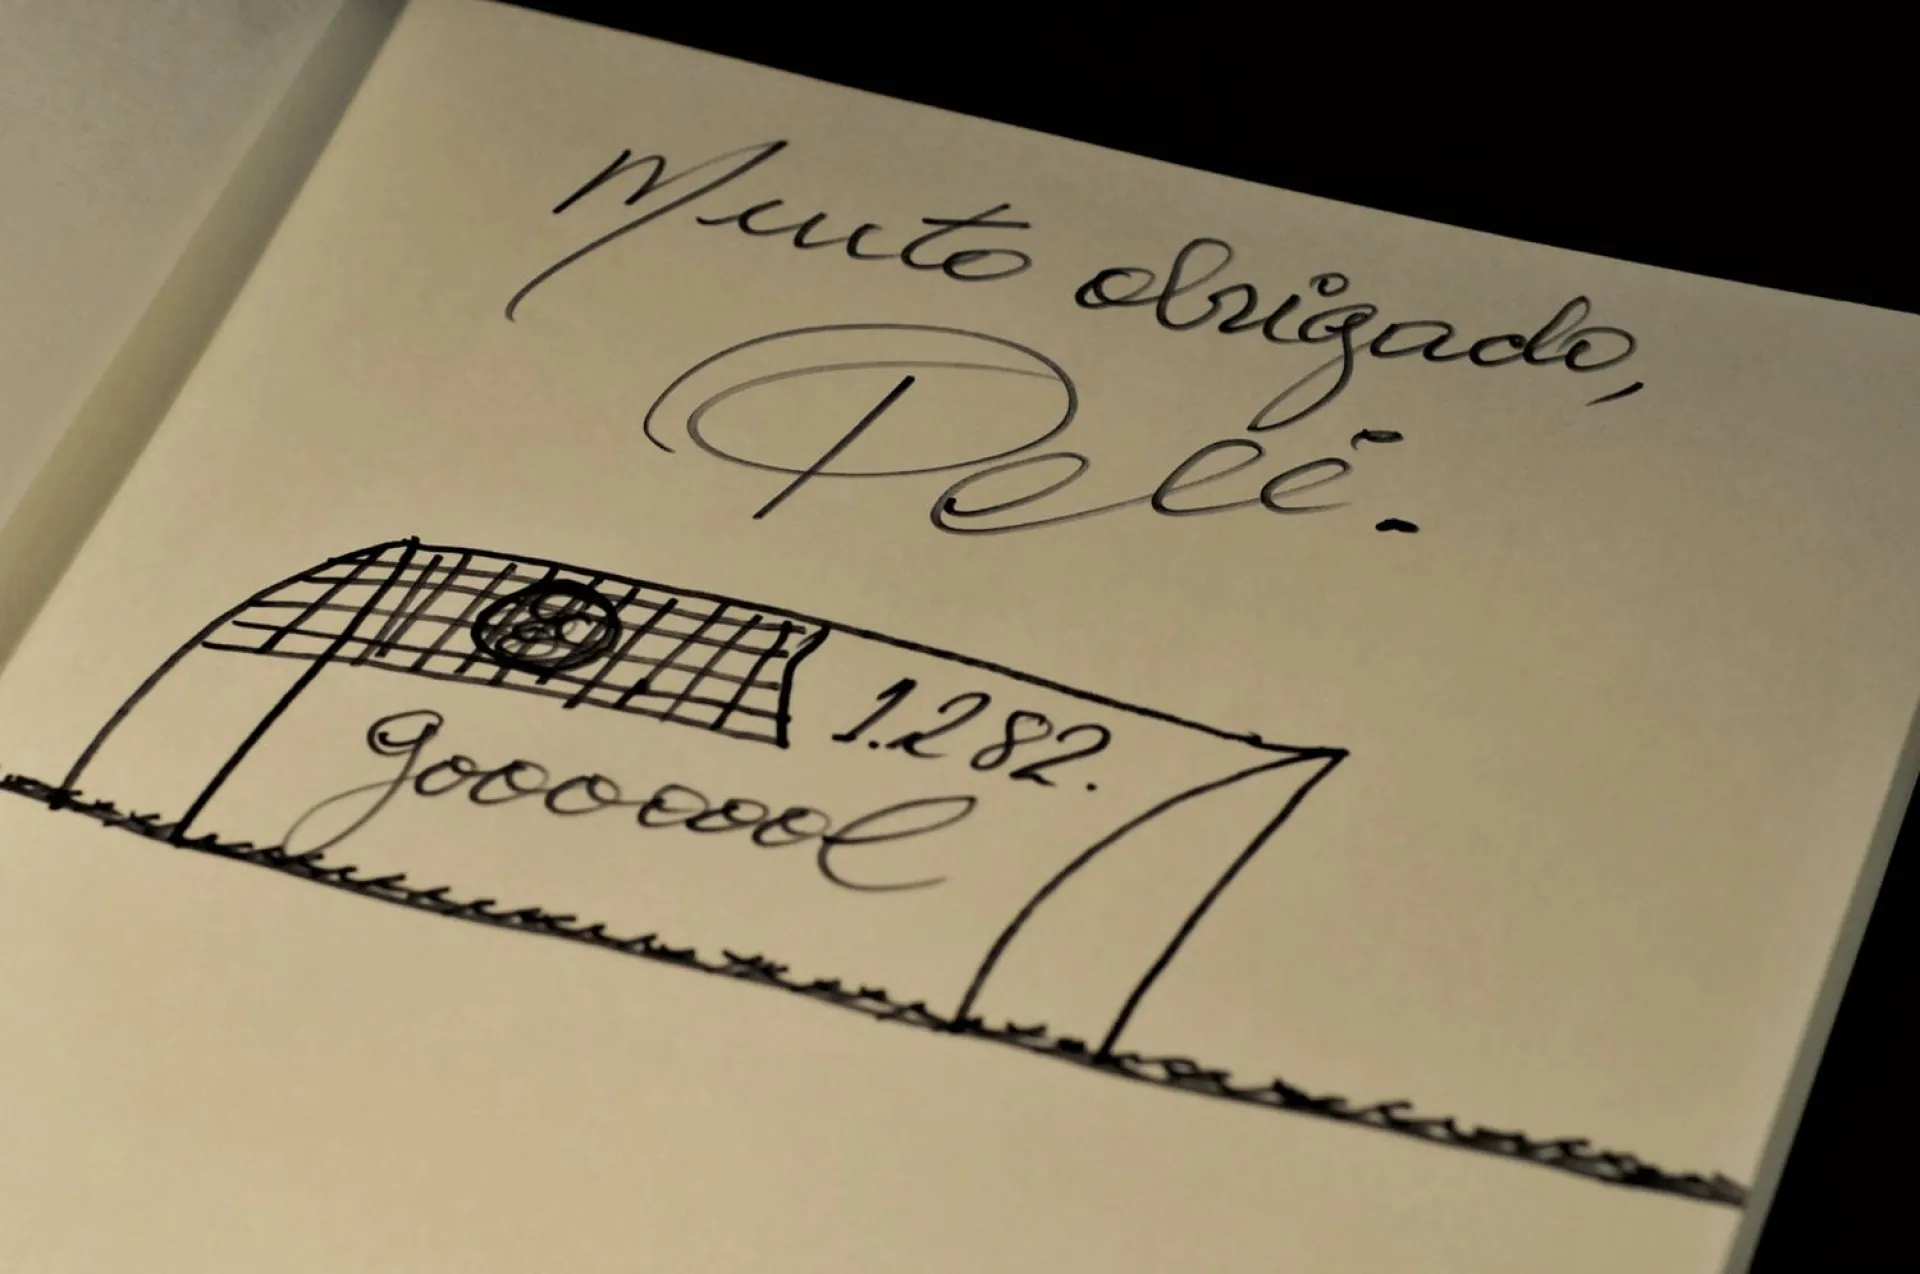 Muito obrigado,
Pelé.
1.282.
goooooool